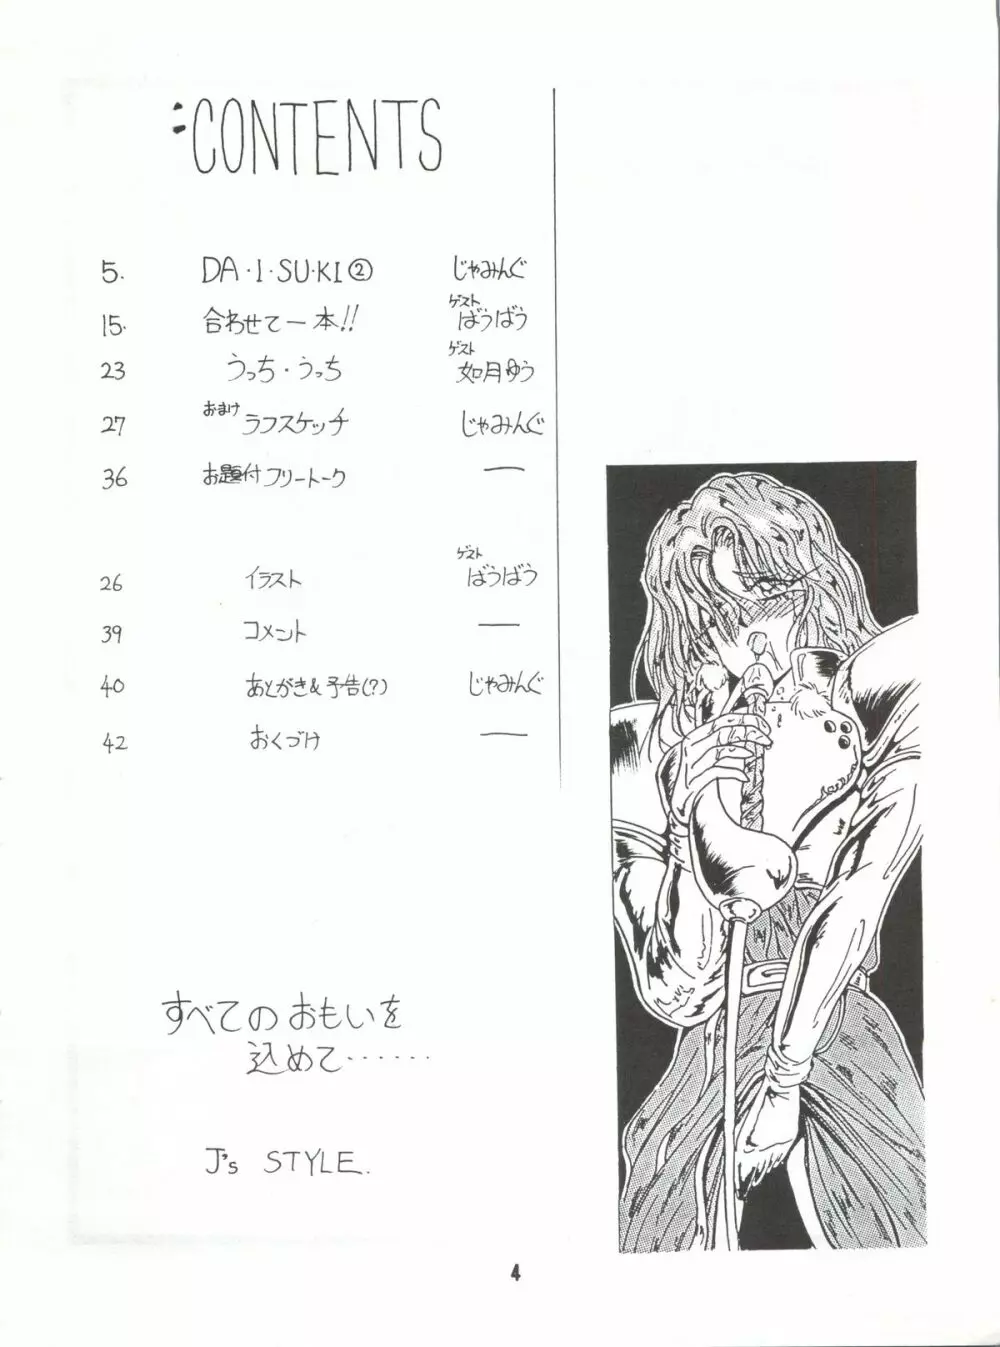 :CONTENTS
5. DA・I・SU・KI② じゃみんぐ
15. 合わせて一本!! ゲスト ばうばう
23 うっち・うっち ゲスト 如月ゆう
27 おまけ ラフスケッチ じゃみんぐ
36 お題付フリートーク ―
26 イラスト ゲスト ばうばう
39 コメント ―
40 あとがき&予告(?) じゃみんぐ
42 おくづけ ―
すべてのおもいを
込めて‥‥‥
J's STYLE.
4